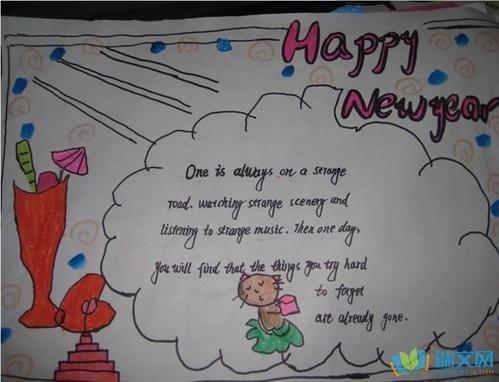 Happy
New year
One is always on a strange
road. watching strange scenery and
listening to strange music. Then one day,
You will find that the things you try hard
to forget
are already gone.
瑞文网